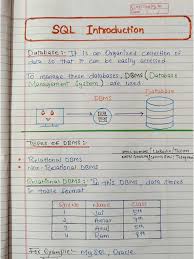 SQL Introduction
Database :- It is an Organized collection of
data so that it can be easily accessed.
To manage these databases, DBMS (Database
Management System) are used.
DBMS
Database
DBMS
Types of DBMS :-
Relational DBMS
Non-Relational DBMS
Relational DBMS : In this DBMS, data stored
in table format.
Name
Class
1
5th
2
3
4
Ram
For Example :- MySQL, Oracle